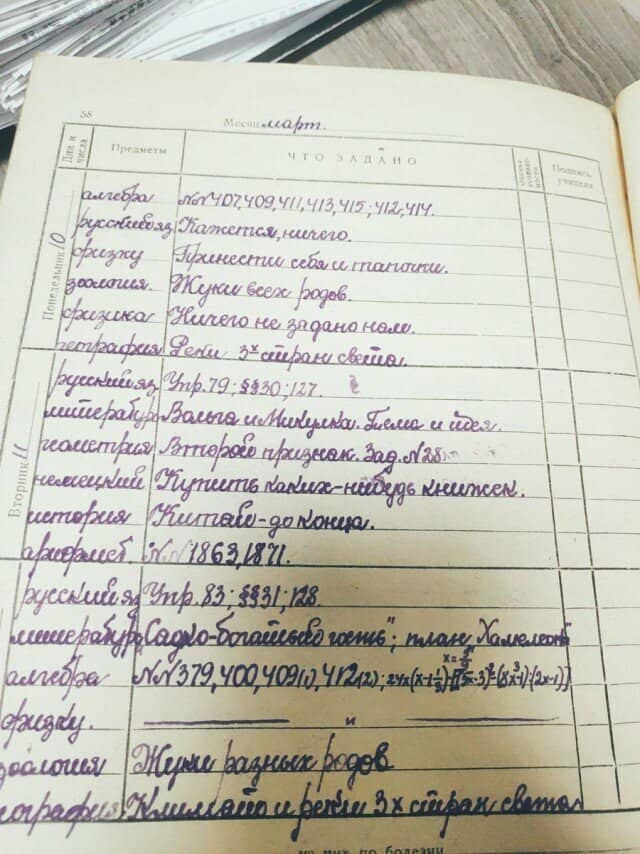 58
Месяц март.
Дни и числа Предметы ЧТО ЗАДАНО Подпись учителя
Понедельник 10
алгебра №№407,409,411,413,415; 412,414.
русский яз Кажется, ничего.
физку Принести себя и тапочки.
зоология. Жуки всех родов.
физика Ничего не задано нам.
география Реки 3х стран света.
Вторник 11
русский яз. Упр. 79; §§30; 127.
литература Вольга и Микулка. Тема и идея.
геометрия Второй признак. Зад. №28
немецкий Купить каких-нибудь книжек.
история Китай-до конца.
арифмет. №№1863,1871.
русский яз Упр. 83; §§31; 128.
литература "Садко-богатый гость"; план Хамелеон
алгебра №№379,400,409(1),412(2);
физку. и
зоология Жуки разных родов
география Климат и реки 3х стран света
из них по болезни